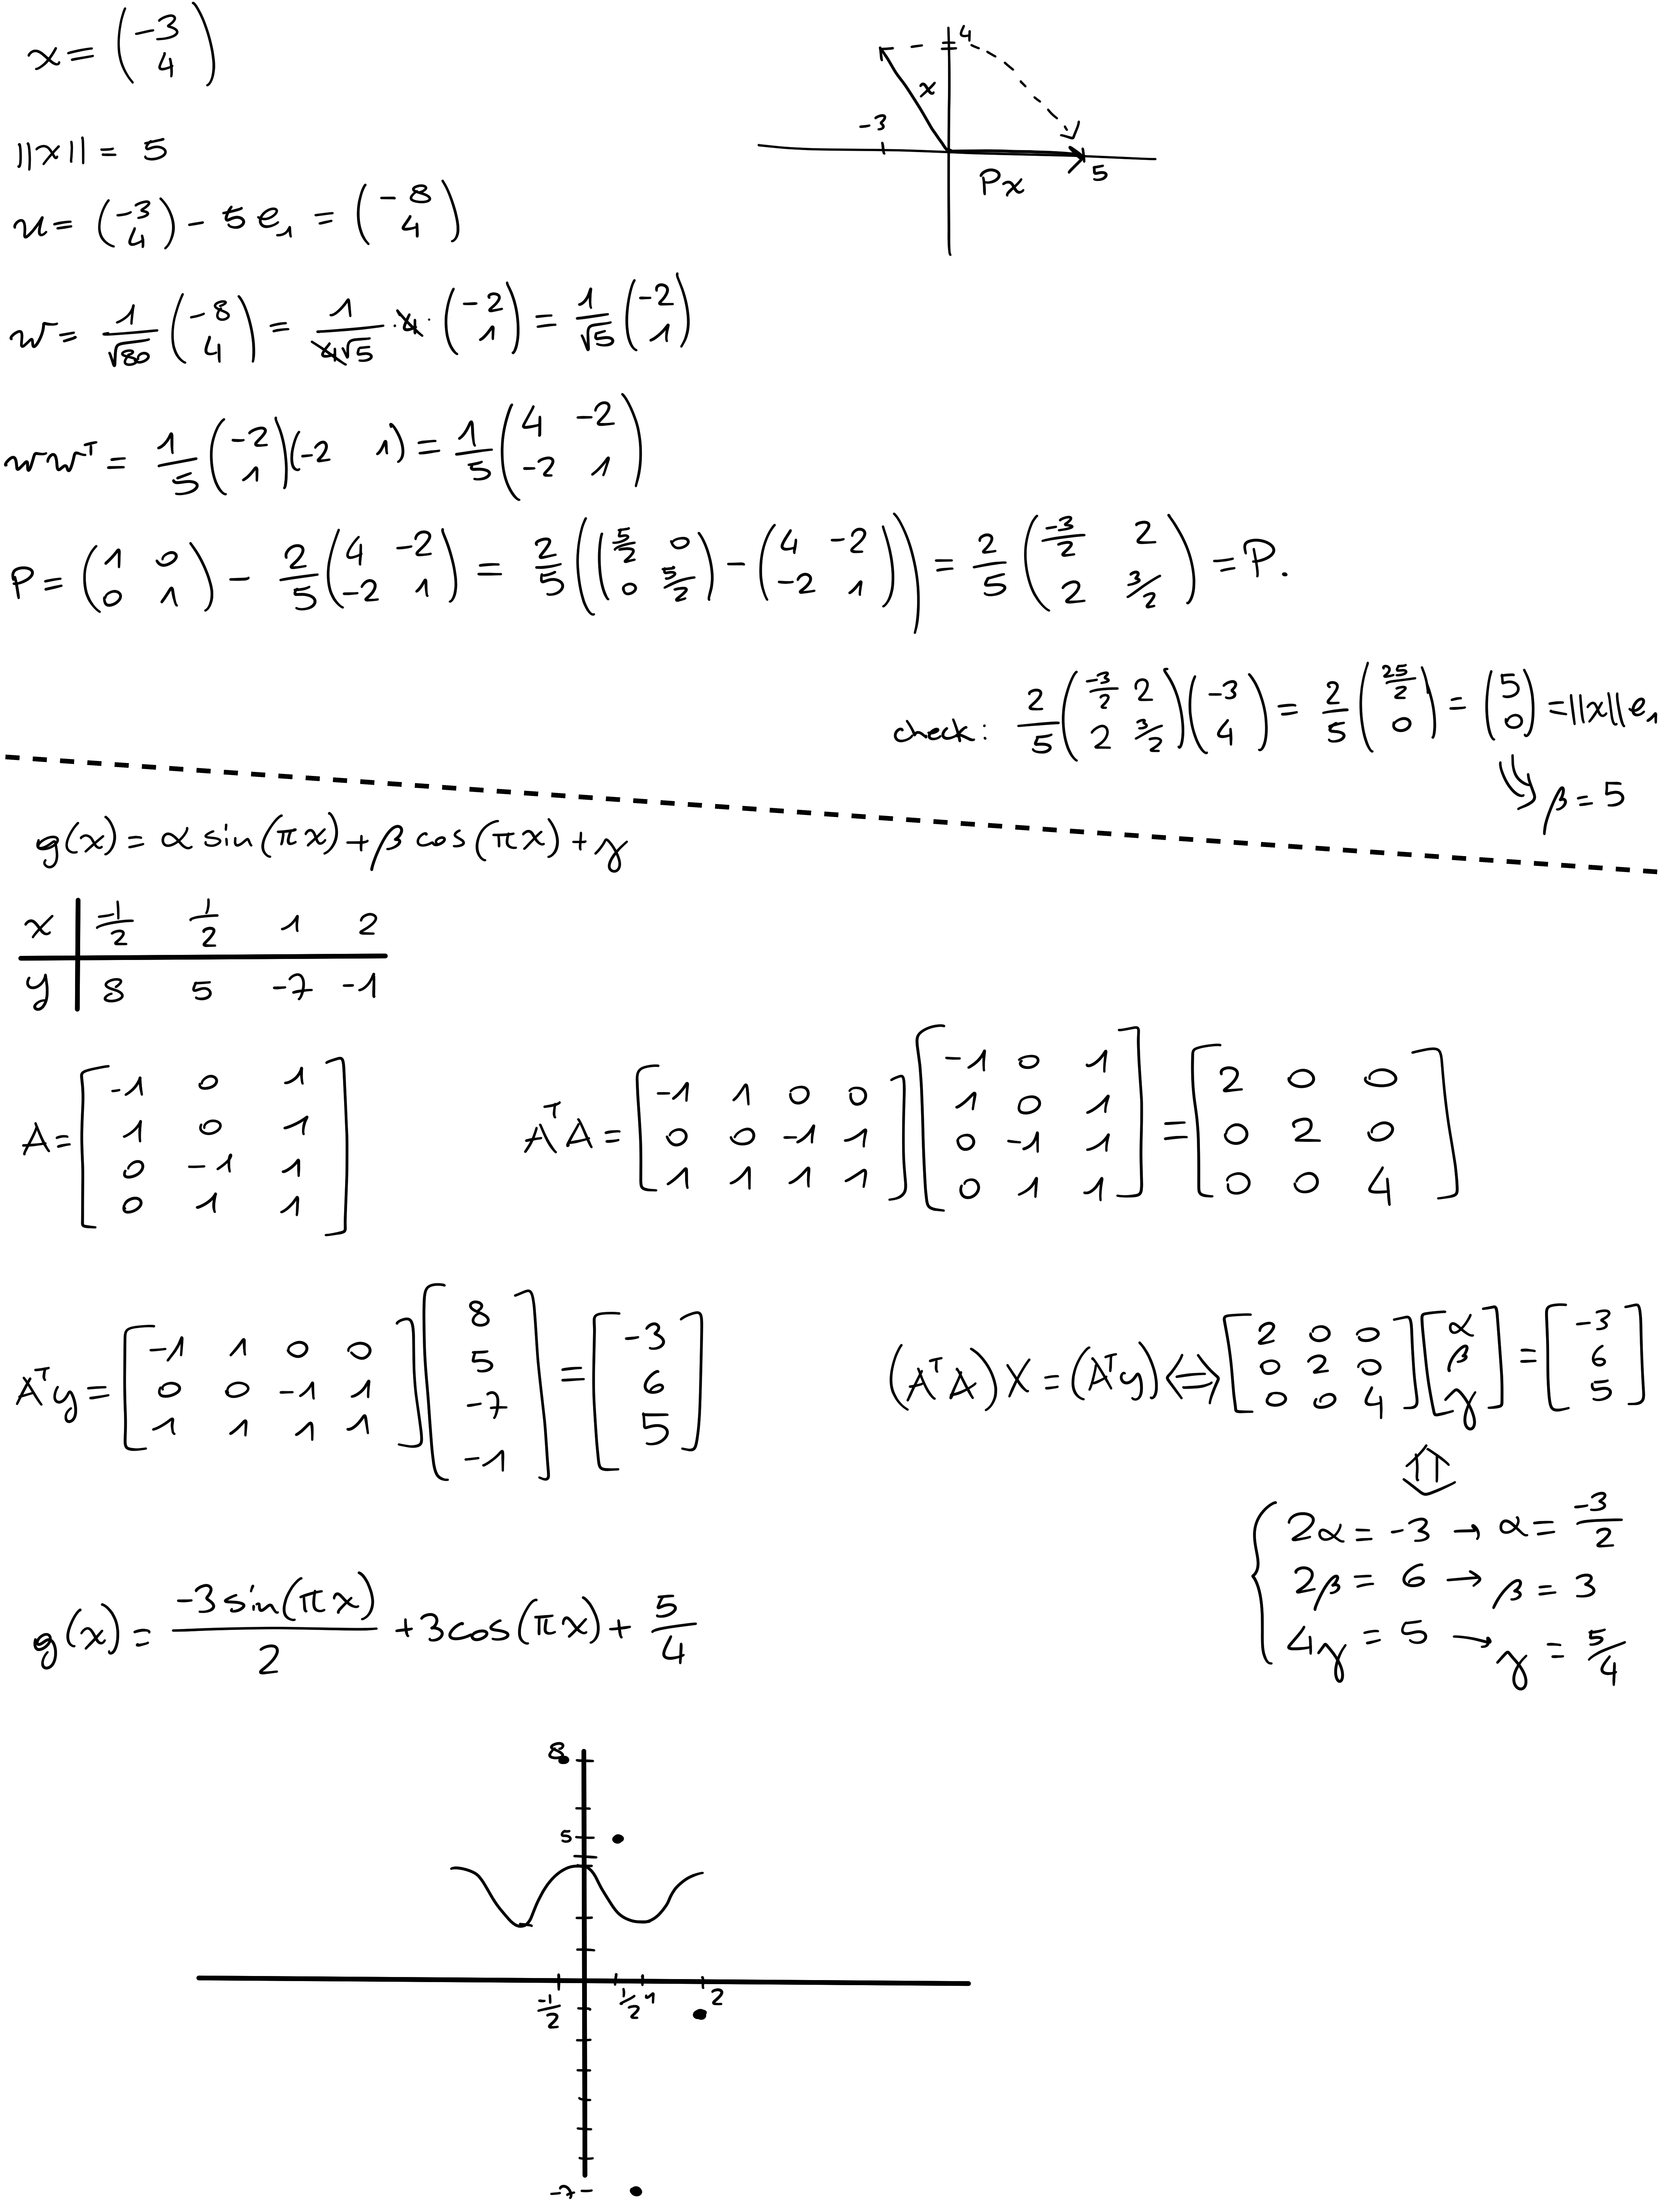 x = (-3 4)
4
x
-3
5
Px
||x|| = 5
u = (-3 4) - 5 e₁ = (-8 4)
w = 1/√80 (-8 4) = 1/4√5 · 4 · (-2 1) = 1/√5 (-2 1)
wwᵀ = 1/5 (-2 1)(-2 1) = 1/5 (4 -2 -2 1)
P = (1 0 0 1) - 2/5 (4 -2 -2 1) = 2/5 ((5/2 0 0 5/2) - (4 -2 -2 1)) = 2/5 (-3/2 2 2 3/2) = P.
check: 2/5 (-3/2 2 2 3/2)(-3 4) = 2/5 (25/2 0) = (5 0) = ||x|| e₁
⇒ β = 5
g(x) = α sin(πx) + β cos(πx) + γ
x | -1/2 1/2 1 2
y | 8 5 -7 -1
A = [-1 0 1 1 0 1 0 -1 1 0 1 1]
AᵀA = [-1 1 0 0 0 0 -1 1 1 1 1 1] [-1 0 1 1 0 1 0 -1 1 0 1 1] = [2 0 0 0 2 0 0 0 4]
Aᵀy = [-1 1 0 0 0 0 -1 1 1 1 1 1] [8 5 -7 -1] = [-3 6 5]
(AᵀA) X = (Aᵀy) ⇔ [2 0 0 0 2 0 0 0 4] [α β γ] = [-3 6 5]
⇕
2α = -3 → α = -3/2
2β = 6 → β = 3
4γ = 5 → γ = 5/4
g(x) = -3 sin(πx)/2 + 3cos(πx) + 5/4
8
5
-1/2 1/2 1 2
-7